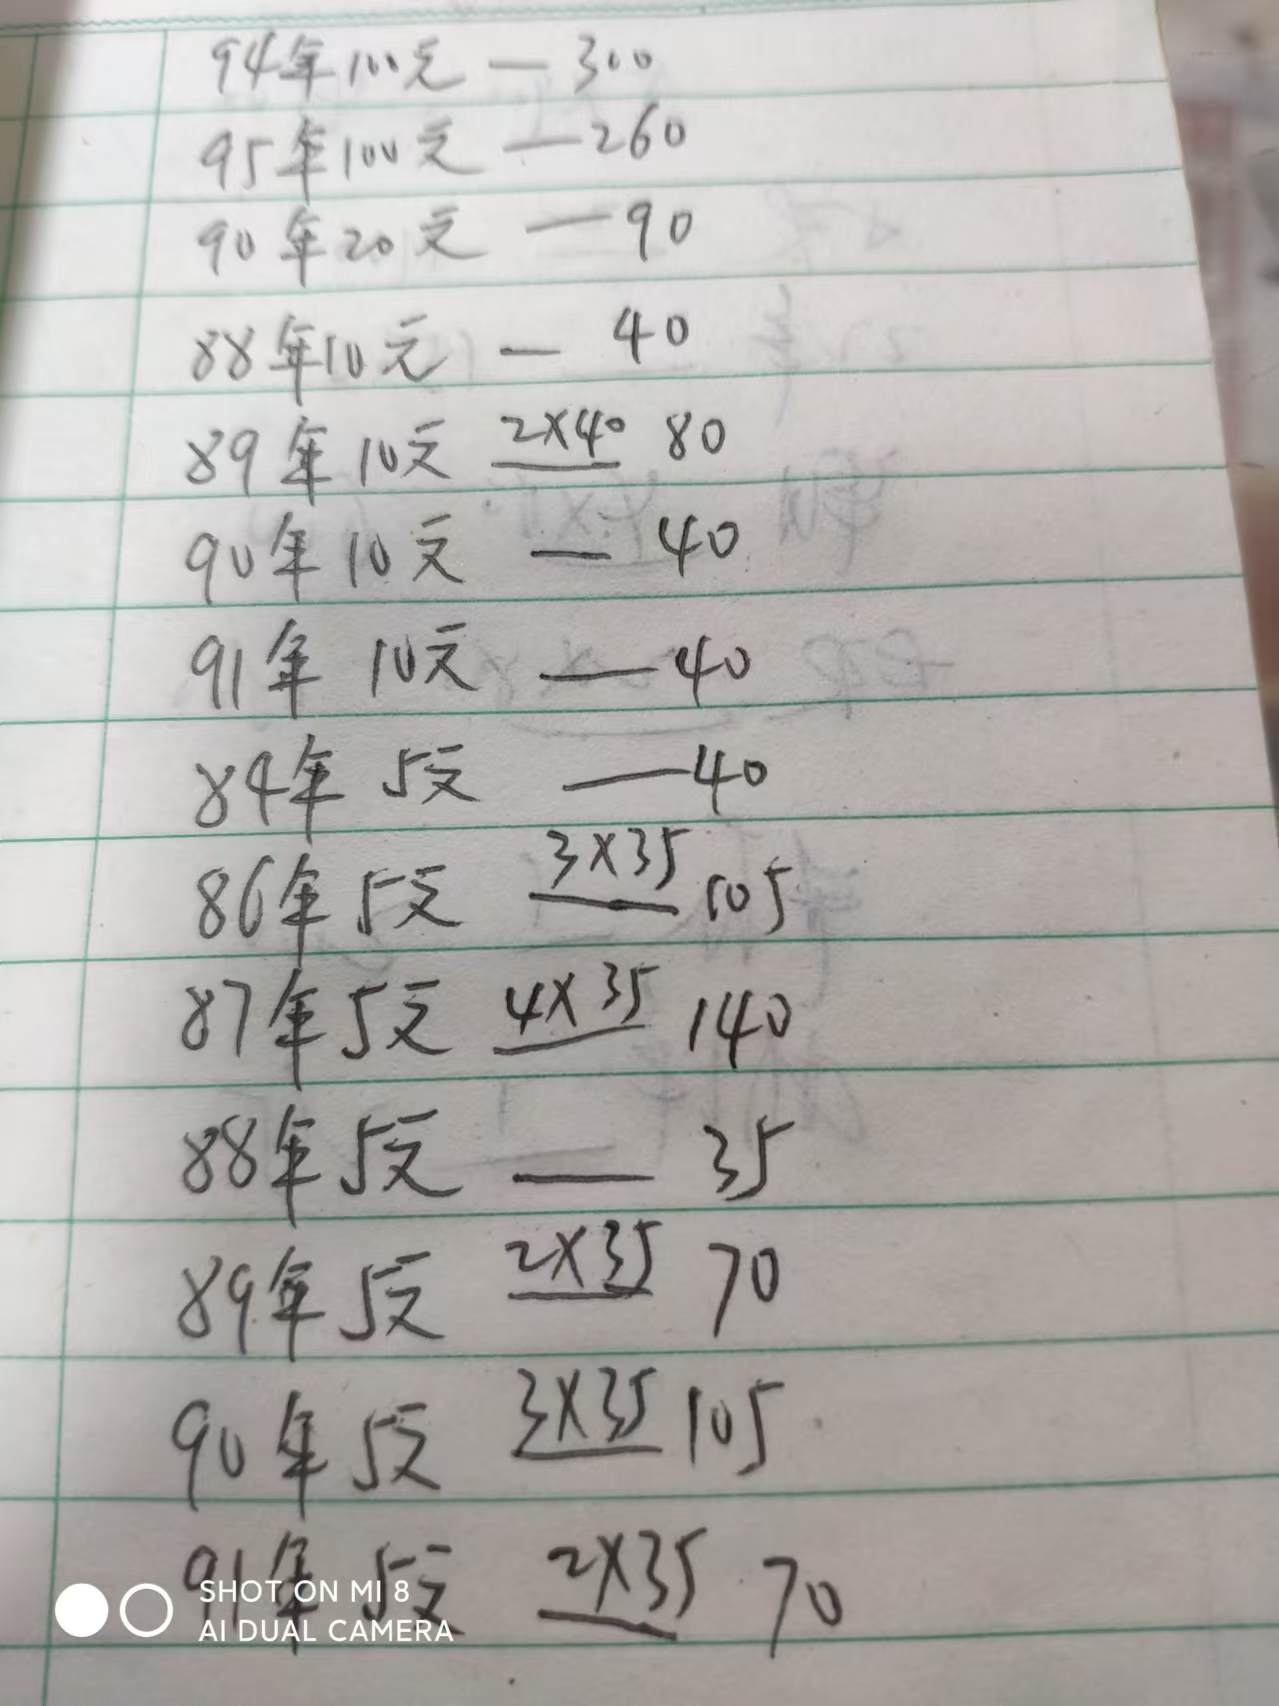 94年100元 — 300
95年100元 — 260
90年20元 — 90
88年10元 — 40
89年10元 2×40 80
90年10元 — 40
91年10元 — 40
84年5元 — 40
86年5元 3×35 105
87年5元 4×35 140
88年5元 — 35
89年5元 2×35 70
90年5元 3×35 105
91年5元 2×35 70
SHOT ON MI 8
AI DUAL CAMERA